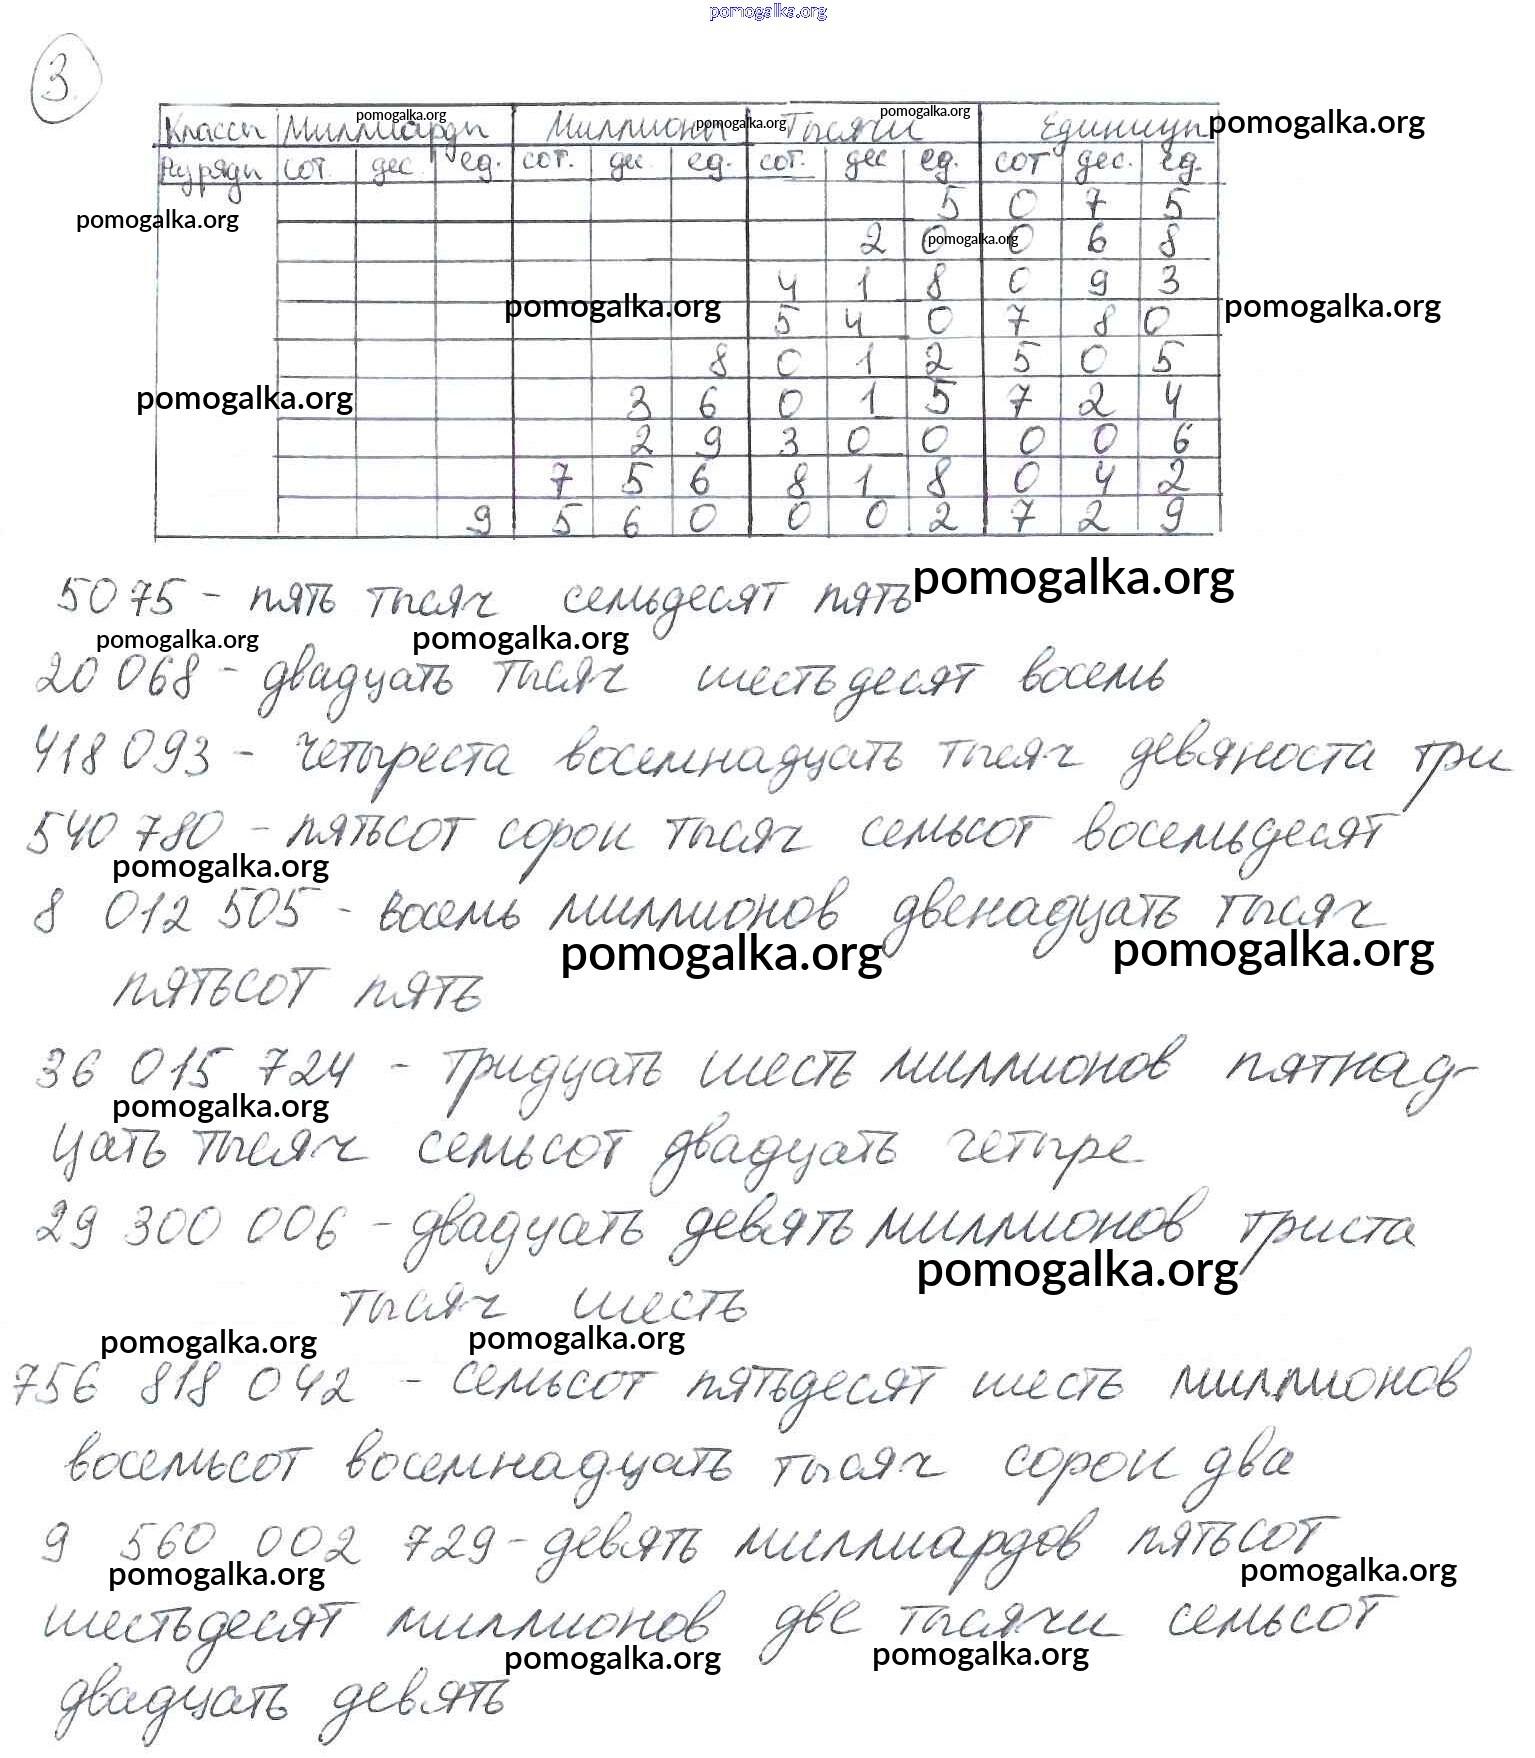 pomogalka.org
3.
pomogalka.org pomogalka.org pomogalka.org
Классы Миллиарды Миллионы Тысячи Единицы pomogalka.org
Разряды сот. дес. ед. сот. дес. ед. сот. дес ед. сот дес. ед.
5 0 7 5
pomogalka.org
2 0 0 6 8
pomogalka.org
4 1 8 0 9 3
pomogalka.org pomogalka.org
5 4 0 7 8 0
8 0 1 2 5 0 5
pomogalka.org 3 6 0 1 5 7 2 4
2 9 3 0 0 0 0 6
7 5 6 8 1 8 0 4 2
9 5 6 0 0 0 2 7 2 9
5075 - пять тысяч семьдесят пять pomogalka.org
pomogalka.org pomogalka.org
20 068 - двадцать тысяч шестьдесят восемь
418 093 - четыреста восемнадцать тысяч девяноста три
540 780 - пятьсот сорок тысяч семьсот восемьдесят
pomogalka.org
8 012 505 - восемь миллионов двенадцать тысяч
pomogalka.org pomogalka.org
пятьсот пять
36 015 724 - тридцать шесть миллионов пятнад-
pomogalka.org
цать тысяч семьсот двадцать четыре
29 300 006 - двадцать девять миллионов триста
pomogalka.org
тысяч шесть
pomogalka.org pomogalka.org
756 818 042 - семьсот пятьдесят шесть миллионов
восемьсот восемнадцать тысяч сорок два
9 560 002 729 - девять миллиардов пятьсот
pomogalka.org pomogalka.org
шестьдесят миллионов две тысячи семьсот
pomogalka.org pomogalka.org
двадцать девять